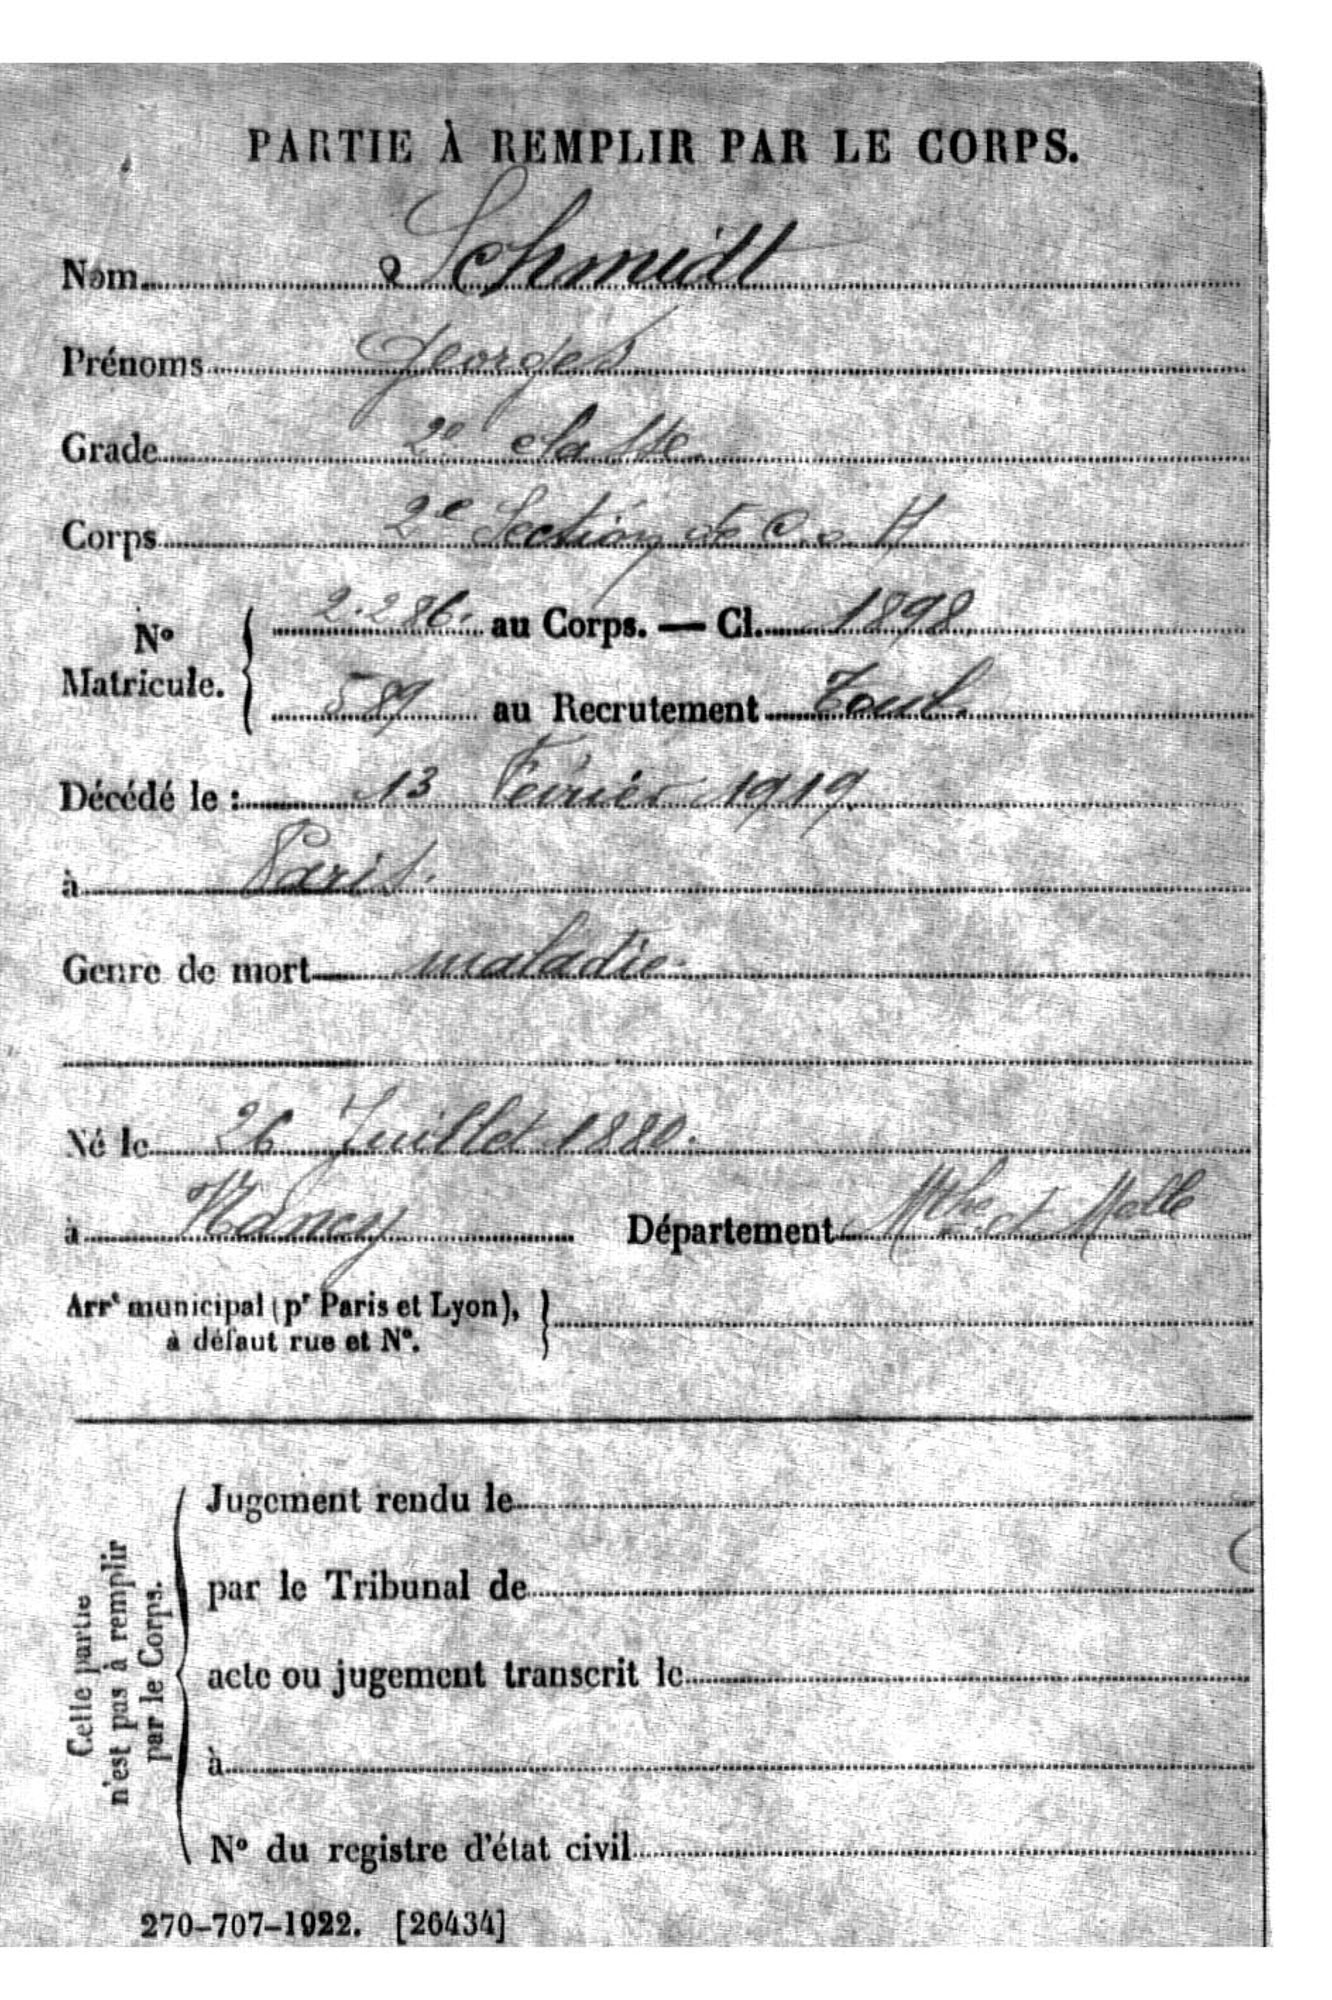 PARTIE À REMPLIR PAR LE CORPS.
Nom Schmidt
Prénoms Georges
Grade 2e classe
Corps 2e Section de C.o.A
No Matricule. 2.286. au Corps. — Cl. 1898
589 au Recrutement Toul.
Décédé le : 13 Février 1919.
à Paris.
Genre de mort maladie.
Né le 26 Juillet 1880.
à Nancy Département Mthe et Melle
Arrt municipal (pr Paris et Lyon),
à défaut rue et No.
Cette partie
n'est pas à remplir
par le Corps.
Jugement rendu le
par le Tribunal de
acte ou jugement transcrit le
à
No du registre d'état civil
270-707-1922. [26434]